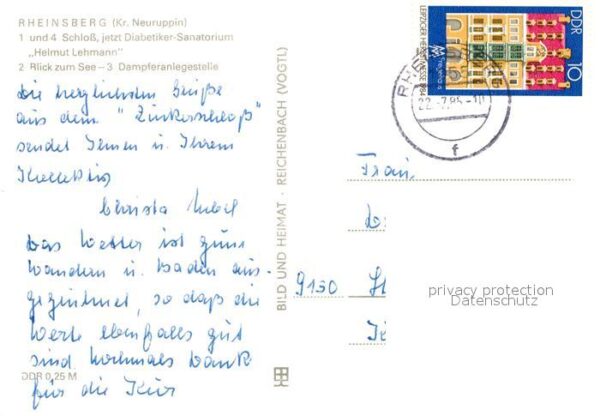 RHEINSBERG (Kr. Neuruppin)
1 und 4 Schloß, jetzt Diabetiker-Sanatorium
„Helmut Lehmann"
2 Blick zum See – 3 Dampferanlegestelle
Die herzlichsten Grüße
aus dem "Zuckerschloß"
sendet Ihnen u. Ihrem
Kollektiv
Christa
Das Wetter ist zum
Wandern u. Baden aus-
gezeichnet, so daß die
Werte ebenfalls gut
sind. Nochmals Dank
für die Kur
DDR 0,25 M
BILD UND HEIMAT · REICHENBACH (VOGTL)
DDR
10
LEIPZIGER HERBSTMESSE 1984
22.-7.85-10
f
Frau
9130
privacy protection
Datenschutz